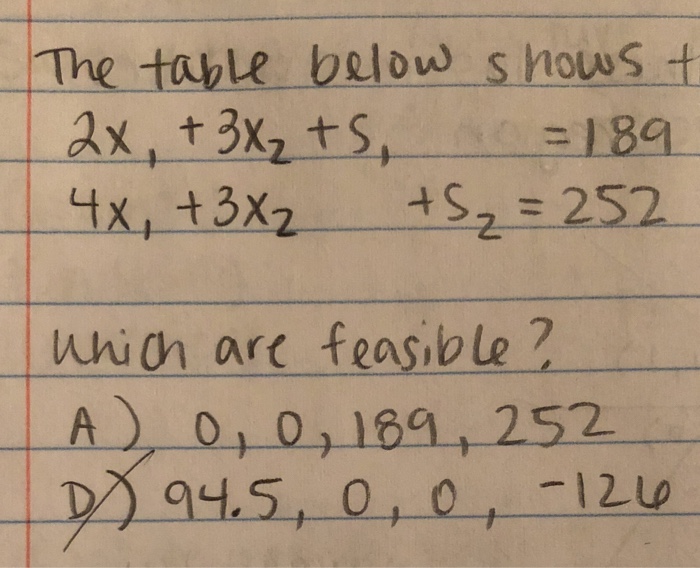 The table below shows t
2x₁ + 3x₂ + S₁ = 189
4x₁ + 3x₂ + S₂ = 252
Which are feasible?
A) 0, 0, 189, 252
D) 94.5, 0, 0, -126